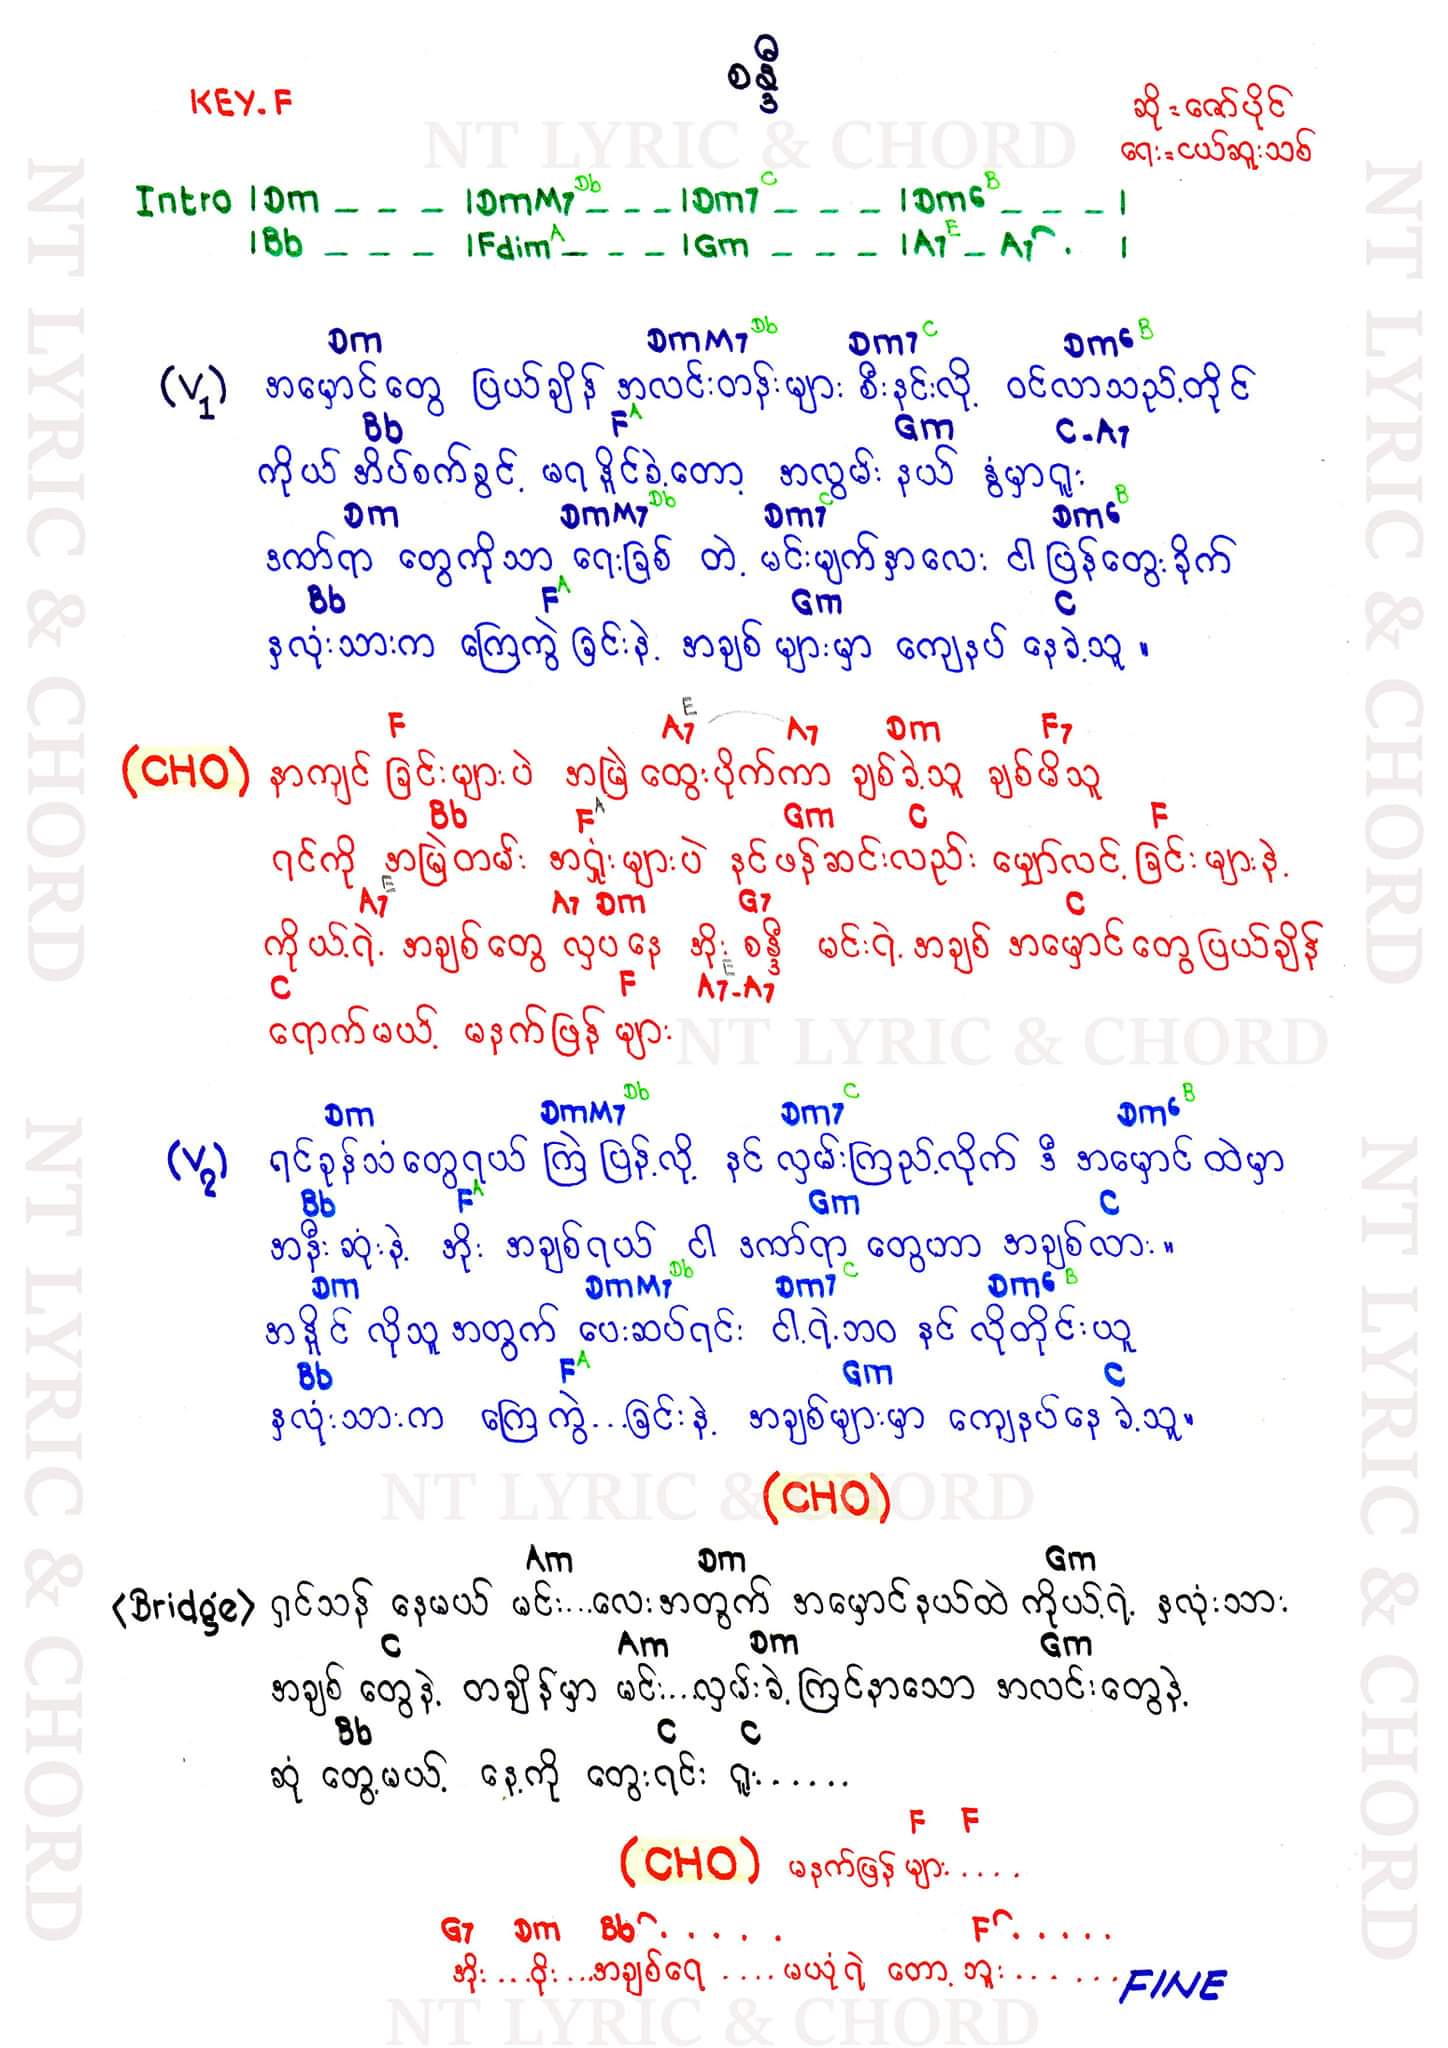 စန္ဒီ
KEY.F
ဆို = ဇော်ပိုင်
ရေး = ငယ်ဆူးသစ်
NT LYRIC & CHORD
Intro |Dm _ _ _ |DmM7 Db _ _ _ |Dm7 C _ _ _ |Dm6 B _ _ _ |
|Bb _ _ _ |Fdim A _ _ _ |Gm _ _ _ |A7 E _ A7 . |
Dm DmM7 Db Dm7 C Dm6 B
(V1) အမှောင်တွေ ပြယ်ချိန် အလင်းတန်းများ စီးနင်းလို့ ဝင်လာသည့်တိုင်
Bb F A Gm C-A7
ကိုယ် အိပ်စက်ခွင့် မရနိူင်ခဲ့တော့ အလွမ်း နယ် နွံမှာရူး
Dm DmM7 Db Dm7 C Dm6 B
ဒဏ်ရာ တွေကိုသာ ရေးခြစ် တဲ့ မင်းမျက်နှာလေး ငါ ပြန်တွေးခိုက်
Bb F A Gm C
နှလုံးသားက ကြေကွဲ ခြင်းနဲ့ အချစ် များမှာ ကျေနပ် နေခဲ့သူ ။
F A7 E A7 Dm F7
(CHO) နာကျင် ခြင်းများပဲ အမြဲ ထွေးပိုက်ကာ ချစ်ခဲ့သူ ချစ်မိသူ
Bb F A Gm C F
ရင်ကို အမြဲတမ်း အရှုံးများပဲ နင်ဖန်ဆင်းလည်း မျှော်လင့် ခြင်းများနဲ့
A7 E A7 Dm G7 C
ကိုယ့်ရဲ့ အချစ်တွေ လှပနေ အိုး စန္ဒီ မင်းရဲ့ အချစ် အမှောင်တွေပြယ်ချိန်
C F A7 E-A7
ရောက်မယ့် မနက်ဖြန် များ
NT LYRIC & CHORD
Dm DmM7 Db Dm7 C Dm6 B
(V2) ရင်ခုန်သံတွေရယ် ကြဲ ပြန့်လို့ နင် လှမ်းကြည့်လိုက် ဒီ အမှောင် ထဲမှာ
Bb F A Gm C
အနီးဆုံးနဲ့ အိုး အချစ်ရယ် ငါ ဒဏ်ရာ တွေဟာ အချစ်လား ။
Dm DmM7 Db Dm7 C Dm6 B
အနှိူင် လိုသူ အတွက် ပေးဆပ်ရင်း ငါ့ရဲ့ဘဝ နင် လိုတိုင်းယူ
Bb F A Gm C
နှလုံးသားက ကြေကွဲ...ခြင်းနဲ့ အချစ်များမှာ ကျေနပ်နေ ခဲ့သူ။
NT LYRIC & CHORD
(CHO)
Am Dm Gm
<Bridge> ရှင်သန် နေမယ် မင်း...လေးအတွက် အမှောင်နယ်ထဲ ကိုယ့်ရဲ့ နှလုံးသား
C Am Dm Gm
အချစ် တွေနဲ့ တချိန်မှာ မင်း...လှမ်းခဲ့ ကြင်နာသော အလင်းတွေနဲ့
Bb C C
ဆုံ တွေ့မယ့် နေ့ကို တွေးရင်း ရူး......
F F
(CHO) မနက်ဖြန် များ ....
G7 Dm Bb ...... F .....
အိုး ...ဝိုး ...အချစ်ရေ .... မယုံရဲ တော့ ဘူး.......FINE
NT LYRIC & CHORD
NT LYRIC & CHORD
NT LYRIC & CHORD
NT LYRIC & CHORD
NT LYRIC & CHORD